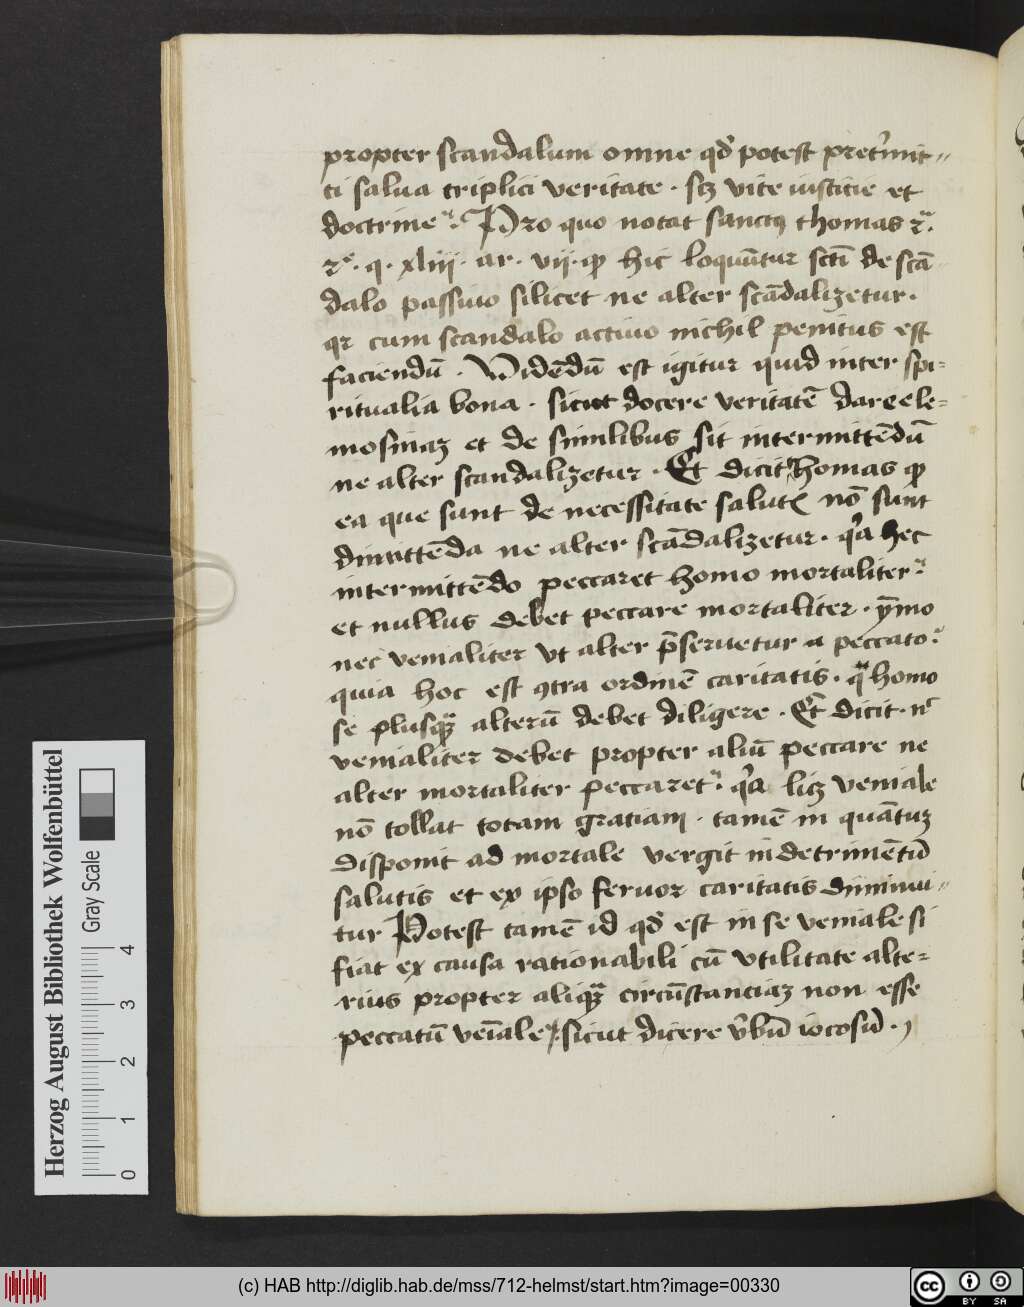 propter scandalum omne qd̾ potest pret̾mit〃
ti salua triplici veritate · scꝫ vite iusticie et
doctrine · Pro quo notat sanctꝰ thomas
q · xliii · ar · vii · ꝙ hic loquūtur scti de scā〃
dalo passiuo silicet ne alter scādalizetur ·
qꝛ cum scandalo actiuo nichil penitus est
faciendū · Widēdū est igitur quid inter spi=
ritualia bona · sicut docere veritatē dare ele=
mosinaꝫ et de similibus sit intermittēdū
ne alter scandalizetur · Et dicit thomas ꝙ
ea que sunt de necessitate salutꝭ nō sunt
dimittēda ne alter scādalizetur · qꝛ̾ hec
intermittēdo peccaret homo mortaliter ·
et nullus debet peccare mortaliter · ȳmo
nec venialiter vt alter p̄seruetur a peccato ·
quia hoc est ꝯtra ordinē caritatis · homo
se plusqꝫ alterū debet diligere · Et dicit · nͨ
venialiter debet propter aliū peccare ne
alter mortaliter peccaret · qꝛ̾ licꝫ veniale
nō tollat totam gratiam · tamē in quātuꝫ
disponit ad mortale vergit in detrimētū
salutis et ex ipso feruor caritatis diminui〃
tur Potest tamē id qd̾ est in se veniale si
fiat ex causa rationabili cū vtilitate alte=
rius propter aliqꝫ circūstanciaꝫ non esse
peccatū veīale · sicut dicere v̾bū iocosū ·
Herzog August Bibliothek Wolfenbüttel
Gray Scale
0 1 2 3 4
(c) HAB http://diglib.hab.de/mss/712-helmst/start.htm?image=00330
cc BY SA